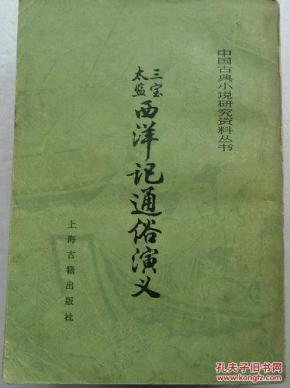 中国古典小说研究资料丛书
三宝
太监
西洋记通俗演义
上海古籍出版社
孔夫子旧书网